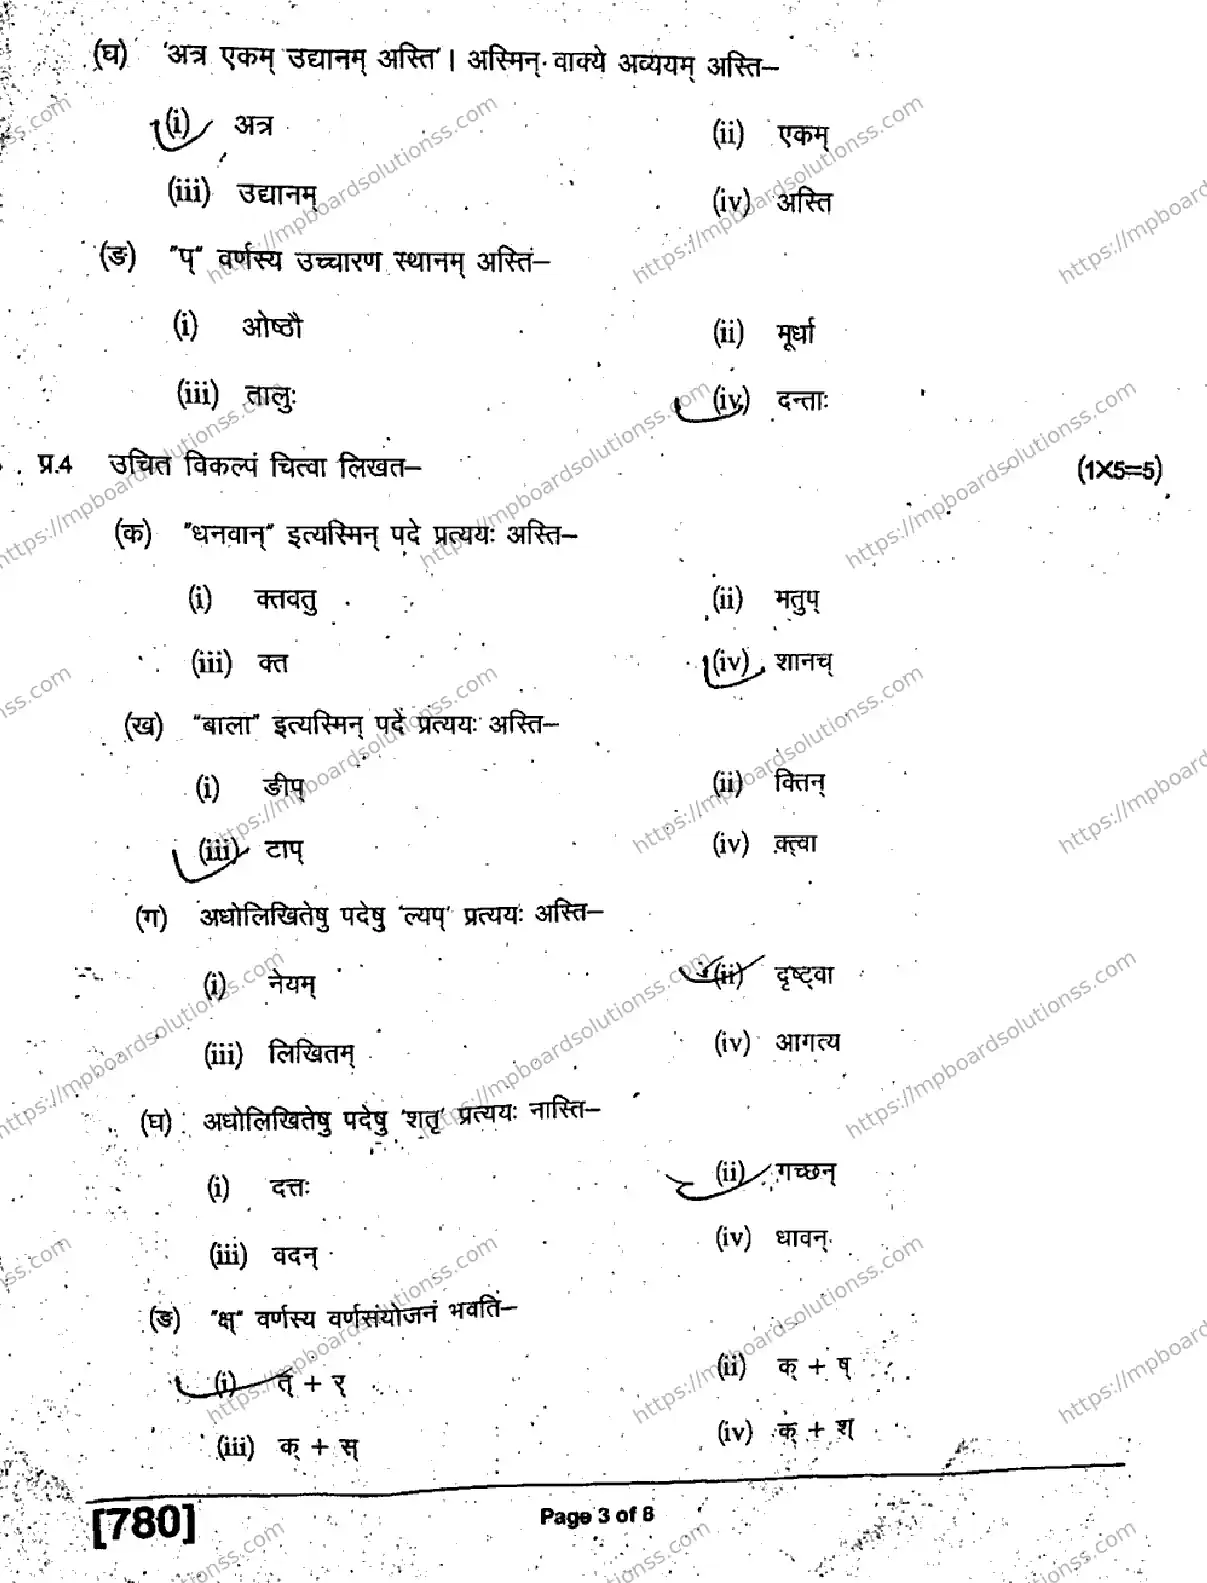 (घ) 'अत्र एकम् उद्यानम् अस्ति'। अस्मिन् वाक्ये अव्ययम् अस्ति–
(i) अत्र (ii) एकम्
(iii) उद्यानम् (iv) अस्ति
(ङ) "प्" वर्णस्य उच्चारण स्थानम् अस्ति–
(i) ओष्ठौ (ii) मूर्धा
(iii) तालुः (iv) दन्ताः
प्र.4 उचित विकल्पं चित्वा लिखत– (1X5=5)
(क) "धनवान्" इत्यस्मिन् पदे प्रत्ययः अस्ति–
(i) क्तवतु (ii) मतुप्
(iii) क्त (iv) शानच्
(ख) "बाला" इत्यस्मिन् पदे प्रत्ययः अस्ति–
(i) ङीप् (ii) क्तिन्
(iii) टाप् (iv) क्त्वा
(ग) अधोलिखितेषु पदेषु 'ल्यप्' प्रत्ययः अस्ति–
(i) नेयम् (ii) दृष्ट्वा
(iii) लिखितम् (iv) आगत्य
(घ) अधोलिखितेषु पदेषु 'शतृ' प्रत्ययः नास्ति–
(i) दत्तः (ii) गच्छन्
(iii) वदन् (iv) धावन्
(ङ) "क्ष्" वर्णस्य वर्णसंयोजनं भवति–
(i) त् + र् (ii) क् + ष्
(iii) क् + स् (iv) क् + श्
[780] Page 3 of 8
https://mpboardsolutionss.com